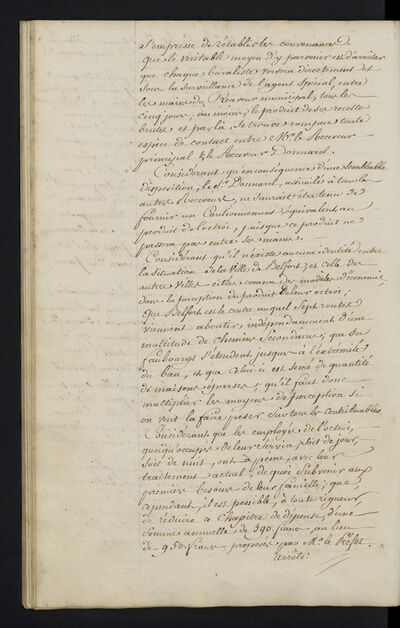 S'empresse de rétablir les convenances.
que le véritable moyen d'y parvenir est d'arrêter
que chaque buraliste versera directement et
sous la surveillance de l'agent spécial, entre
les mains du Receveur municipal, tous les
cinq jours, au moins, le produit de sa recette
brute, et par là, se trouve rompue toute
espèce de contact entre Mr. le Receveur
principal & le Receveur Donnard.
Considérant, qu'en conséquence d'une semblable
disposition, le Sr. Donnard, assimilé à tous les
autres Receveurs, ne saurait être tenu de
fournir un Cautionnement équivalent au
produit de l'octroi, puisque ce produit ne
passera pas entre ses mains.
Considérant qu'il n'existe aucune identité entre
la situation de la Ville de Belfort, et celle des
autres Villes citées comme des modèles d'économie,
dans la perception du produit de leur octroi;
que Belfort est le centre auquel sept routes
viennent aboutir, indépendamment d'une
multitude de chemins secondaires; que ses
faubourgs s'étendent jusques à l'extrémité
du ban, et que celui-ci est semé de quantité
de maisons éparses; qu'il faut donc
multiplier les moyens de perception si
on veut la faire peser sur tous les Contribuables.
Considérant que les employés de l'octroi,
quoiqu'occupés de leur service, soit de jour,
soit de nuit, ont à peine, avec leur
traitement actuel, de quoi subvenir aux
premiers besoins de leur famille; que
cependant, il est possible, à toute rigueur,
de réduire ce chapitre de dépense, d'une
somme annuelle de 390. francs, au lieu
de 950. francs, proposés par Mr. le Préfet.
arrête: